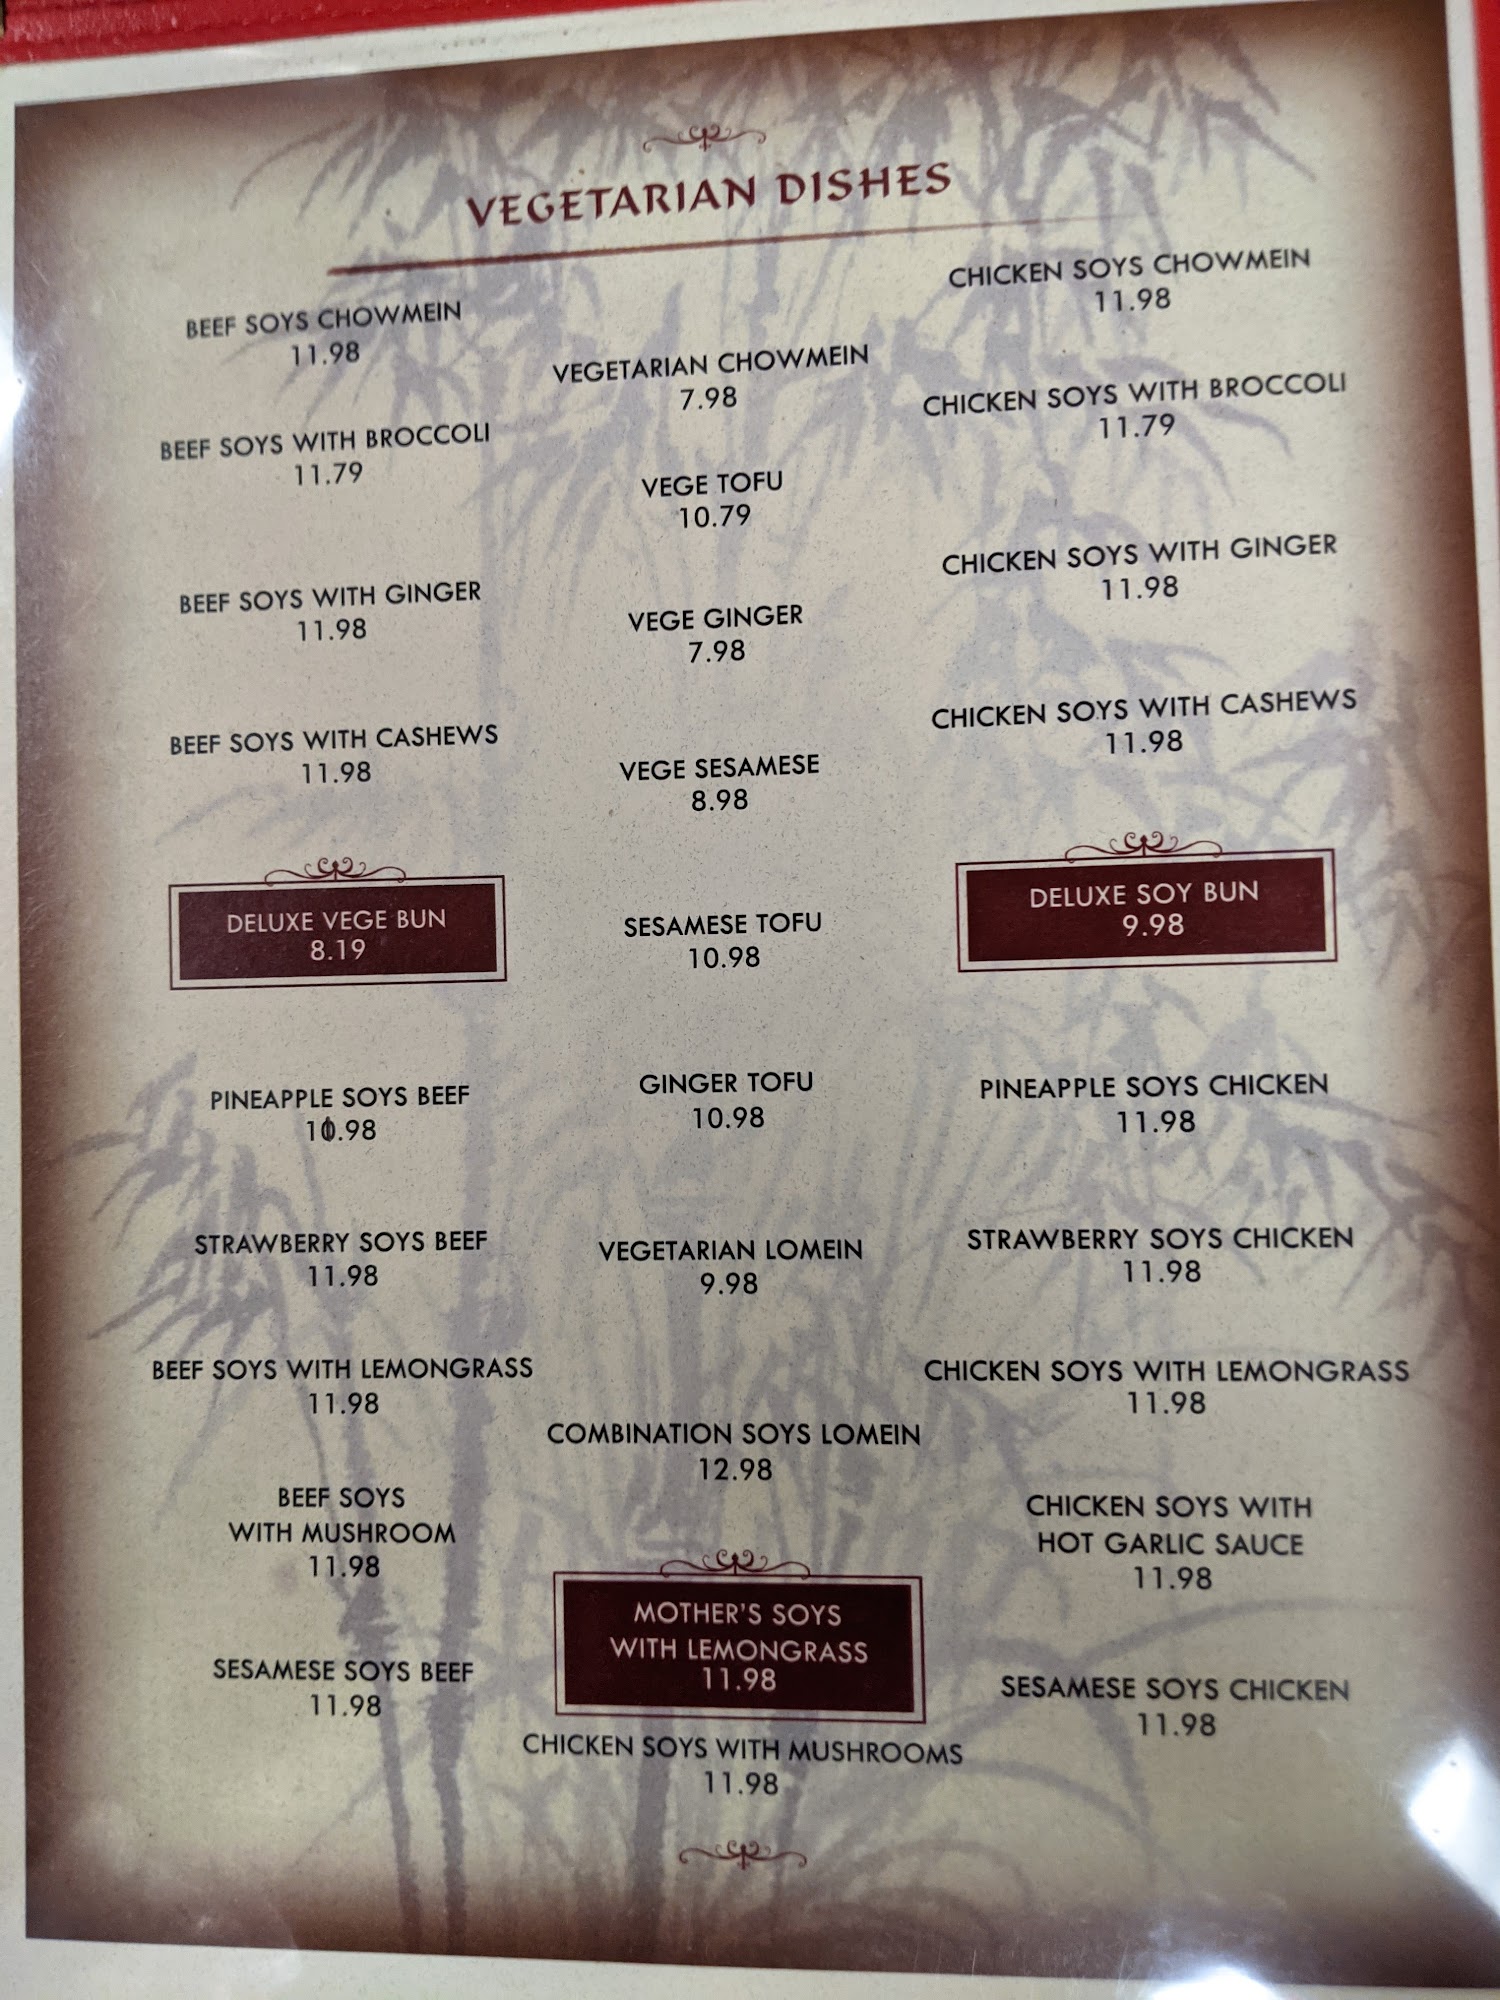 VEGETARIAN DISHES
BEEF SOYS CHOWMEIN
11.98
BEEF SOYS WITH BROCCOLI
11.79
BEEF SOYS WITH GINGER
11.98
BEEF SOYS WITH CASHEWS
11.98
DELUXE VEGE BUN
8.19
PINEAPPLE SOYS BEEF
10.98
STRAWBERRY SOYS BEEF
11.98
BEEF SOYS WITH LEMONGRASS
11.98
BEEF SOYS
WITH MUSHROOM
11.98
SESAMESE SOYS BEEF
11.98
VEGETARIAN CHOWMEIN
7.98
VEGE TOFU
10.79
VEGE GINGER
7.98
VEGE SESAMESE
8.98
SESAMESE TOFU
10.98
GINGER TOFU
10.98
VEGETARIAN LOMEIN
9.98
COMBINATION SOYS LOMEIN
12.98
MOTHER'S SOYS
WITH LEMONGRASS
11.98
CHICKEN SOYS WITH MUSHROOMS
11.98
CHICKEN SOYS CHOWMEIN
11.98
CHICKEN SOYS WITH BROCCOLI
11.79
CHICKEN SOYS WITH GINGER
11.98
CHICKEN SOYS WITH CASHEWS
11.98
DELUXE SOY BUN
9.98
PINEAPPLE SOYS CHICKEN
11.98
STRAWBERRY SOYS CHICKEN
11.98
CHICKEN SOYS WITH LEMONGRASS
11.98
CHICKEN SOYS WITH
HOT GARLIC SAUCE
11.98
SESAMESE SOYS CHICKEN
11.98